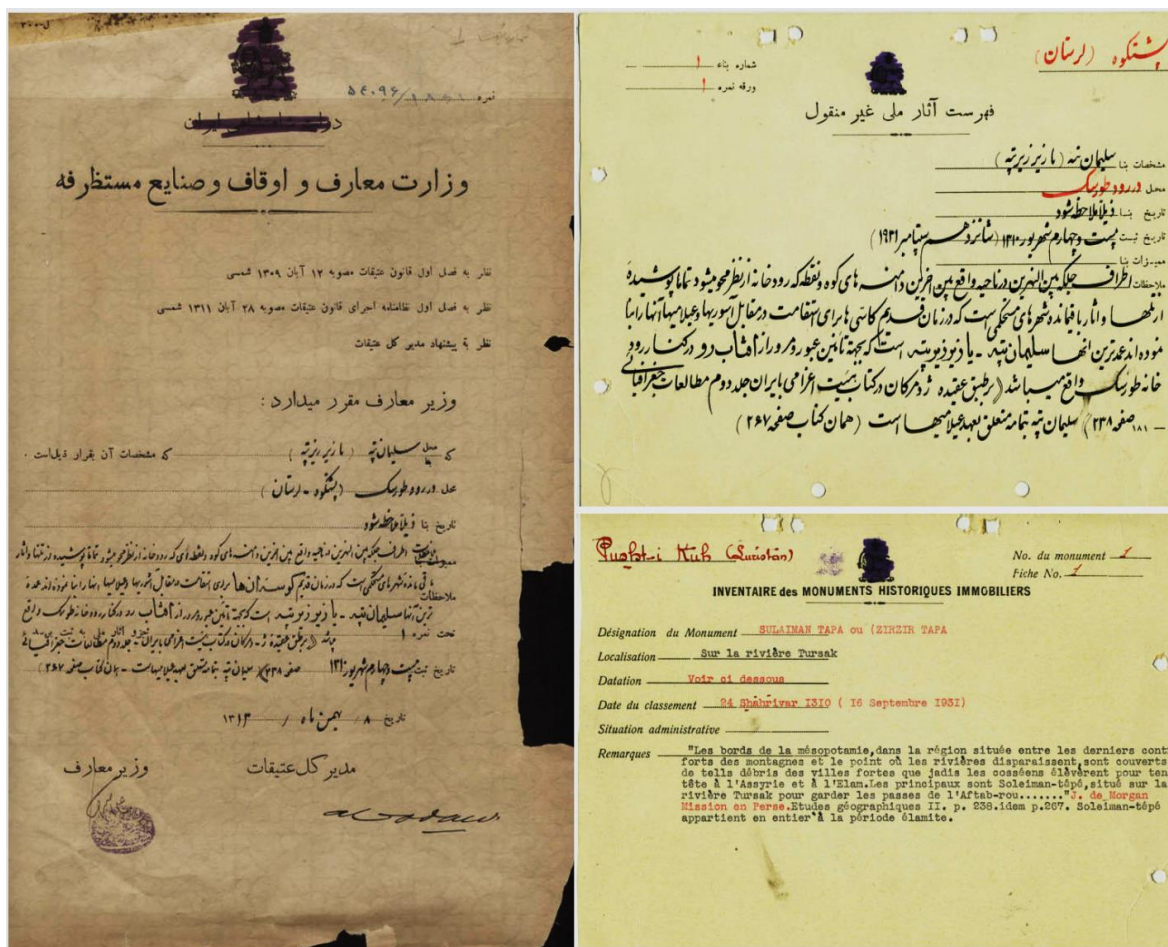 نمره
وزارت معارف و اوقاف و صنایع مستظرفه
نظر به فصل اول قانون عتیقات مصوبه ۱۲ آبان ۱۳۰۹ شمسی
نظر به فصل اول نظامنامه اجرای قانون عتیقات مصوبه ۲۸ آبان ۱۳۱۱ شمسی
نظر به پیشنهاد مدیر کل عتیقات
وزیر معارف مقرر میدارد :
که محل سلیمان تپه ( یا زیر زیر تپه ) که مشخصات آن بقرار ذیل است .
محل در رود طورسک ( پشتکوه - لرستان )
تاریخ بنا ذیلا ملاحظه شود
ملاحظات
تحت نمره ۱
تاریخ ثبت بیست و چهارم شهریور ۱۳۱۰
تاریخ ۸ / بهمن ماه / ۱۳۱۳
مدیر کل عتیقات
وزیر معارف
پشتکوه (لرستان)
شماره بناء ۱
ورقه نمره ۱
فهرست آثار ملی غیر منقول
مشخصات بنا سلیمان تپه ( یا زیر زیر تپه )
محل در رود طورسک
تاریخ بنا ذیلا ملاحظه شود
تاریخ ثبت بیست و چهارم شهریور ۱۳۱۰ (شانزدهم سپتامبر ۱۹۳۱)
ممیزات بنا
ملاحظات اطراف جلگه بین النهرین در ناحیه واقع بین آخرین دامنه های کوه و نقطه که رودخانه از نظر محو میشود تماما پوشیده
از تلها و آثار باقیمانده شهرهای مستحکمی است که در زمان قدیم کاسی ها برای استقامت در مقابل آسوریها و عیلامیها آنها را بنا
نموده اند عمده ترین آنها سلیمان تپه - یا زیر زیر تپه است که بجهة تأمین عبور و مرور از آفتاب رو در کنار رود
خانه طورسک واقع میباشد ( برطبق عقیده ژ دمرگان در کتاب هیئت اعزامی بایران جلد دوم مطالعات جغرافیائی
صفحه ۲۳۸) سلیمان تپه بتمامه متعلق بعهد عیلامیها است ( همان کتاب صفحه ۲۶۷ )
Pusht-i Kuh (Luristan)
No. du monument 1
Fiche No. 1
INVENTAIRE des MONUMENTS HISTORIQUES IMMOBILIERS
Désignation du Monument SULAIMAN TAPA ou (ZIRZIR TAPA
Localisation Sur la rivière Tursak
Datation Voir ci dessous
Date du classement 24 Shahrivar I3I0 ( I6 Septembre I93I)
Situation administrative
Remarques "Les bords de la mésopotamie,dans la région située entre les derniers cont
forts des montagnes et le point où les rivières disparaissent,sont couverts
de tells débris des villes fortes que jadis les cosséens élevèrent pour ten
tête à l'Assyrie et à l'Elam.Les principaux sont Soleiman-tépé,situé sur la
rivière Tursak pour garder les passes de l'Aftab-rou......."J. de Morgan
Mission en Perse.Etudes géographiques II. p. 238.idem p.267. Soleiman-tépé
appartient en entier à la période élamite.